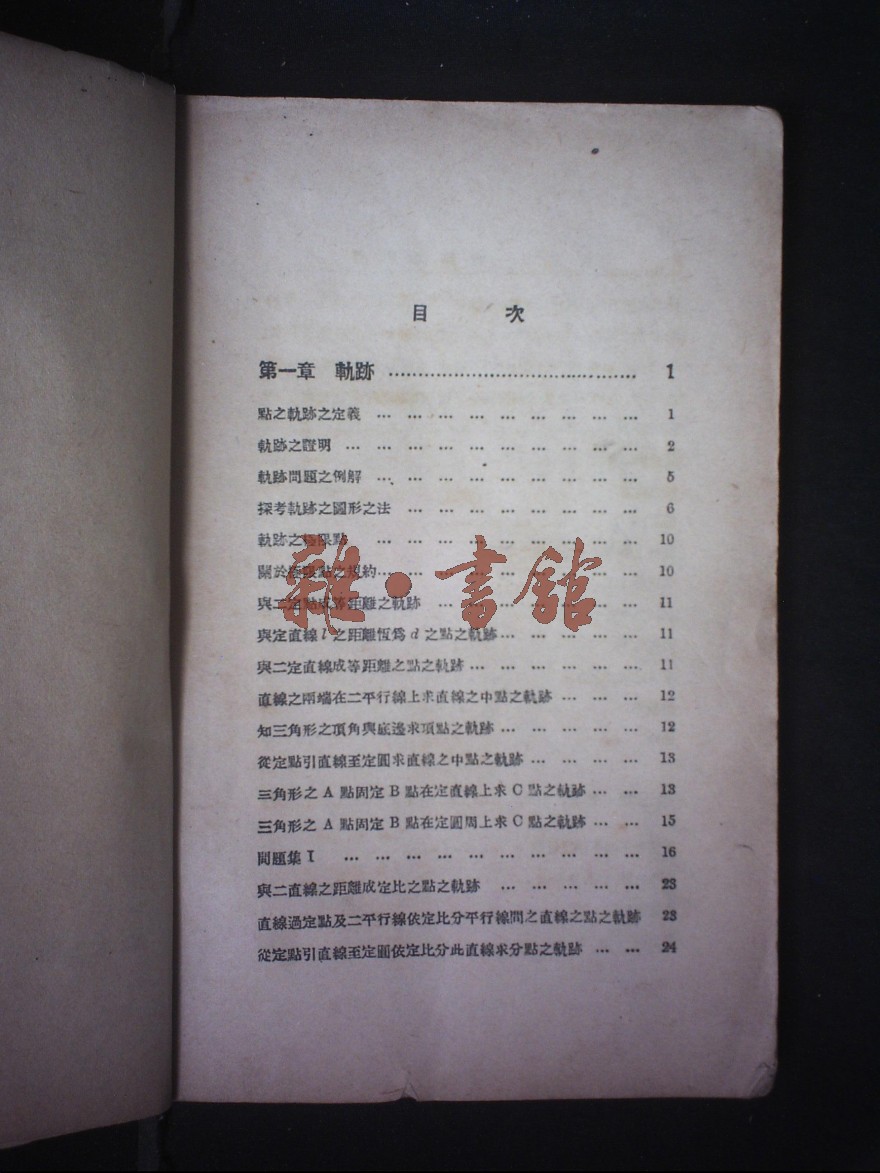 目 次
第一章 軌跡 ........................................ 1
點之軌跡之定義 ... ... ... ... ... ... ... ... ... 1
軌跡之證明 ... ... ... ... ... ... ... ... ... ... 2
軌跡問題之例解 ... ... ... ... ... ... ... ... ... 5
探考軌跡之圖形之法 ... ... ... ... ... ... ... ... 6
軌跡之極限點 ... ... ... ... ... ... ... ... ... 10
關於極限點之規約... ... ... ... ... ... ... ... ... 10
與二定點成等距離之軌跡 ... ... ... ... ... ... ... 11
與定直線 l 之距離恆爲 d 之點之軌跡... ... ... ... ... 11
與二定直線成等距離之點之軌跡... ... ... ... ... ... 11
直線之兩端在二平行線上求直線之中點之軌跡 ... ... ... 12
知三角形之頂角與底邊求頂點之軌跡 ... ... ... ... ... 12
從定點引直線至定圓求直線之中點之軌跡 ... ... ... ... 13
三角形之 A 點固定 B 點在定直線上求 C 點之軌跡 ... ... 13
三角形之 A 點固定 B 點在定圓周上求 C 點之軌跡 ... ... 15
問題集 I ... ... ... ... ... ... ... ... ... ... 16
與二直線之距離成定比之點之軌跡 ... ... ... ... ... 23
直線過定點及二平行線依定比分平行線間之直線之點之軌跡 23
從定點引直線至定圓依定比分此直線求分點之軌跡 ... ... 24
雜·書館